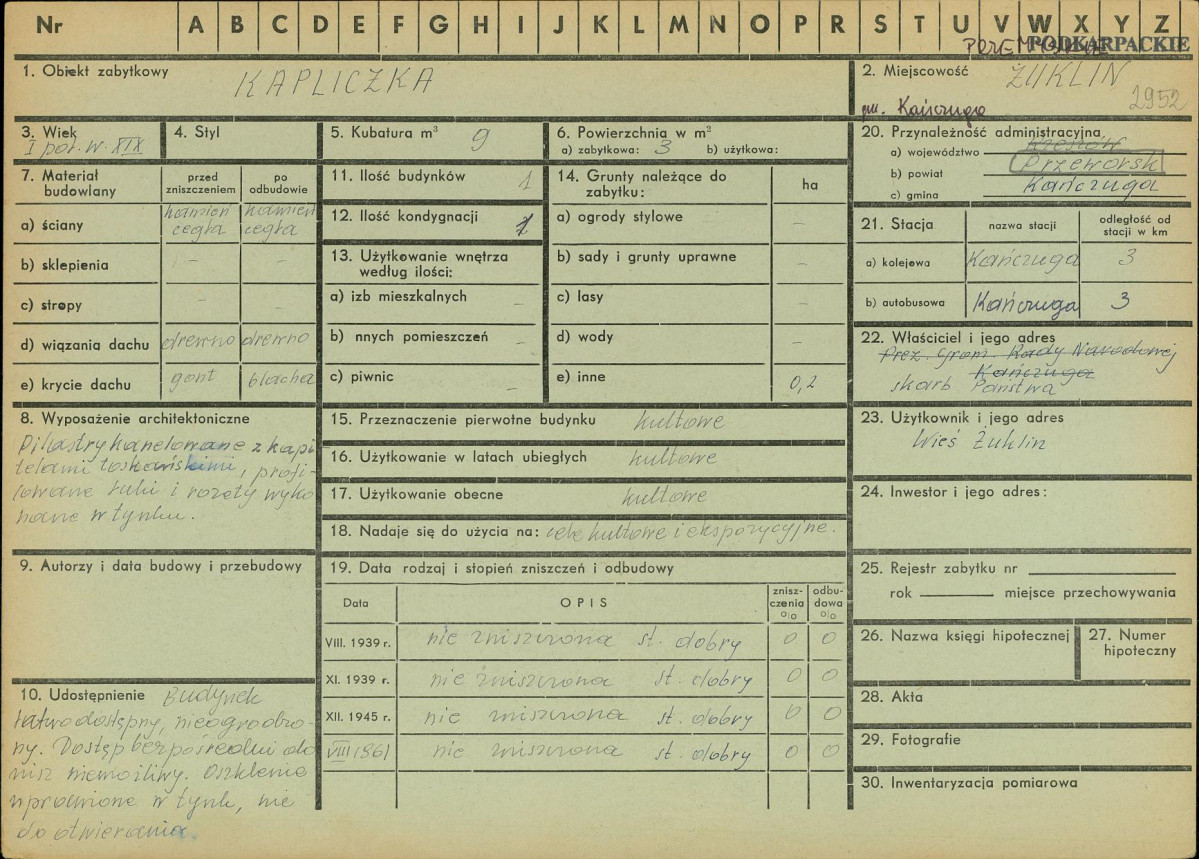 Nr A B C D E F G H I J K L M N O P R S T U V W X Y Z
PODKARPACKIE
1. Obiekt zabytkowy KAPLICZKA
2. Miejscowość ŻUKLIN
gm. Kańczuga 2952
3. Wiek I poł. w. XIX
4. Styl
5. Kubatura m³ 9
6. Powierzchnia w m²
a) zabytkowa: 3 b) użytkowa:
7. Materiał budowlany
przed zniszczeniem
po odbudowie
a) ściany kamień cegła kamień cegła
b) sklepienia - -
c) stropy - -
d) wiązania dachu drewno drewno
e) krycie dachu gont blacha
8. Wyposażenie architektoniczne
Pilastry kanelowane z kapi
telami toskańskimi, profi-
lowane łuki i rozety wyko
nane w tynku.
9. Autorzy i data budowy i przebudowy
10. Udostępnienie Budynek
łatwo dostępny, nieogrodzo-
ny. Dostęp bezpośredni do
nisz niemożliwy. Oszklenie
wprawione w tynk, nie
do otwierania.
11. Ilość budynków 1
12. Ilość kondygnacji 1
13. Użytkowanie wnętrza
według ilości:
a) izb mieszkalnych -
b) nnych pomieszczeń -
c) piwnic -
14. Grunty należące do
zabytku: ha
a) ogrody stylowe -
b) sady i grunty uprawne -
c) lasy -
d) wody -
e) inne 0,2
15. Przeznaczenie pierwotne budynku kultowe
16. Użytkowanie w latach ubiegłych kultowe
17. Użytkowanie obecne kultowe
18. Nadaje się do użycia na: cele kultowe i ekspozycyjne.
19. Data rodzaj i stopień zniszczeń i odbudowy
Data OPIS znisz-czenia % odbu-dowa %
VIII. 1939 r. nie zniszczona st. dobry 0 0
XI. 1939 r. nie zniszczona st. dobry 0 0
XII. 1945 r. nie zniszczona st. dobry 0 0
VIII 1961 nie zniszczona st. dobry 0 0
20. Przynależność administracyjna
a) województwo Rzeszów
b) powiat Przeworsk
c) gmina Kańczuga
21. Stacja nazwa stacji odległość od stacji w km
a) kolejowa Kańczuga 3
b) autobusowa Kańczuga 3
22. Właściciel i jego adres
Prez. Grom. Rady Narodowej
Kańczuga
skarb Państwa
23. Użytkownik i jego adres
Wieś Żuklin
24. Inwestor i jego adres:
25. Rejestr zabytku nr
rok miejsce przechowywania
26. Nazwa księgi hipotecznej
27. Numer hipoteczny
28. Akta
29. Fotografie
30. Inwentaryzacja pomiarowa